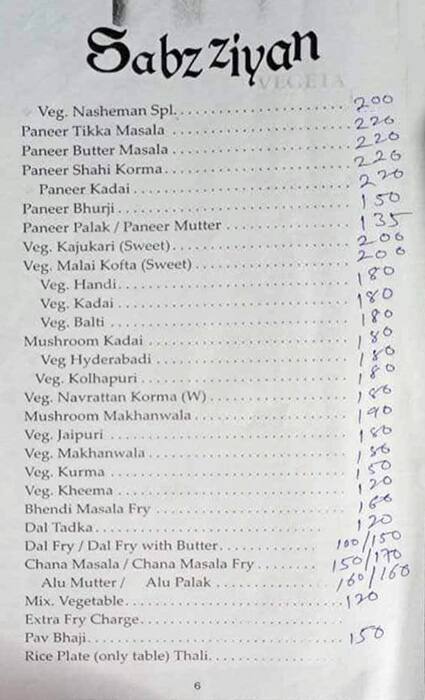 Sabzziyan
VEGETA
Veg. Nasheman Spl. 200
Paneer Tikka Masala 220
Paneer Butter Masala 220
Paneer Shahi Korma 220
Paneer Kadai 220
Paneer Bhurji 150
Paneer Palak / Paneer Mutter 135
Veg. Kajukari (Sweet) 200
Veg. Malai Kofta (Sweet) 200
Veg. Handi 180
Veg. Kadai 180
Veg. Balti 180
Mushroom Kadai 180
Veg Hyderabadi 180
Veg. Kolhapuri 180
Veg. Navrattan Korma (W) 180
Mushroom Makhanwala 190
Veg. Jaipuri 180
Veg. Makhanwala 180
Veg. Kurma 150
Veg. Kheema 120
Bhendi Masala Fry 160
Dal Tadka 120
Dal Fry / Dal Fry with Butter 100/150
Chana Masala / Chana Masala Fry 150/170
Alu Mutter / Alu Palak 160/160
Mix. Vegetable 120
Extra Fry Charge
Pav Bhaji 150
Rice Plate (only table) Thali
6